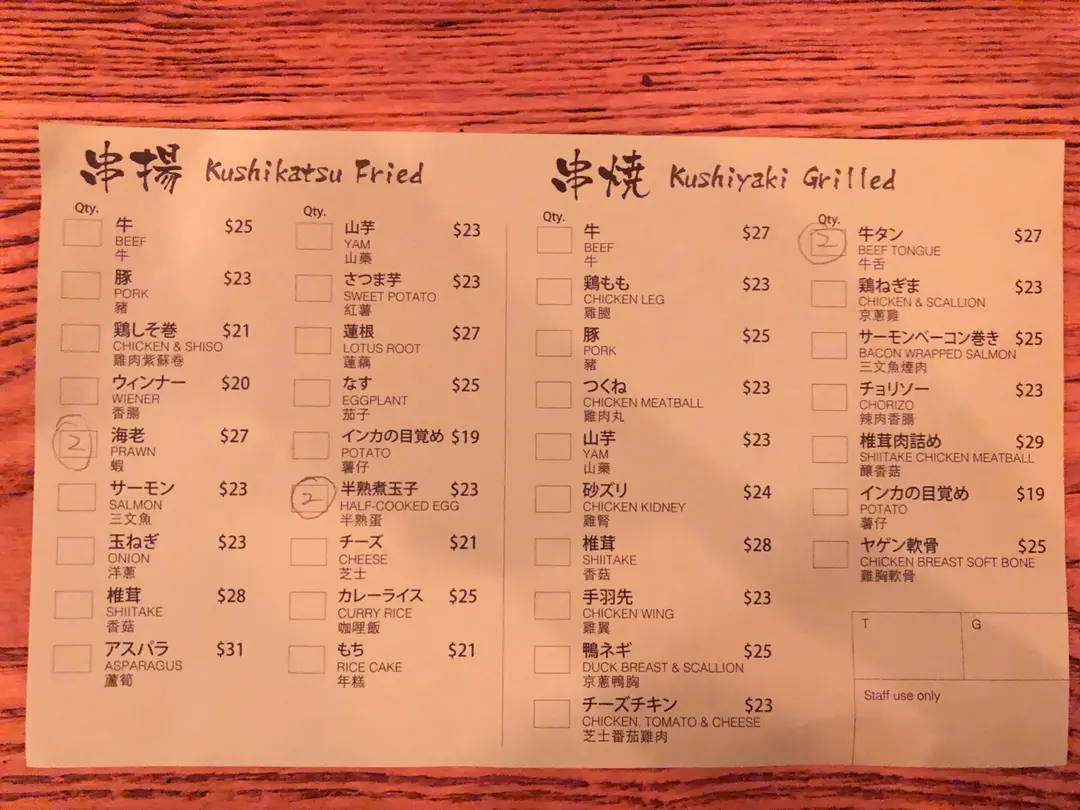 串揚 Kushikatsu Fried
Qty.
牛 $25
BEEF
牛
豚 $23
PORK
豬
鶏しそ巻 $21
CHICKEN & SHISO
雞肉紫蘇卷
ウィンナー $20
WIENER
香腸
2 海老 $27
PRAWN
蝦
サーモン $23
SALMON
三文魚
玉ねぎ $23
ONION
洋蔥
椎茸 $28
SHIITAKE
香菇
アスパラ $31
ASPARAGUS
蘆筍
Qty.
山芋 $23
YAM
山藥
さつま芋 $23
SWEET POTATO
紅薯
蓮根 $27
LOTUS ROOT
蓮藕
なす $25
EGGPLANT
茄子
インカの目覚め $19
POTATO
薯仔
2 半熟煮玉子 $23
HALF-COOKED EGG
半熟蛋
チーズ $21
CHEESE
芝士
カレーライス $25
CURRY RICE
咖哩飯
もち $21
RICE CAKE
年糕
串焼 Kushiyaki Grilled
Qty.
牛 $27
BEEF
牛
鶏もも $23
CHICKEN LEG
雞腿
豚 $25
PORK
豬
つくね $23
CHICKEN MEATBALL
雞肉丸
山芋 $23
YAM
山藥
砂ズリ $24
CHICKEN KIDNEY
雞腎
椎茸 $28
SHIITAKE
香菇
手羽先 $23
CHICKEN WING
雞翼
鴨ネギ $25
DUCK BREAST & SCALLION
京蔥鴨胸
チーズチキン $23
CHICKEN, TOMATO & CHEESE
芝士番茄雞肉
Qty.
2 牛タン $27
BEEF TONGUE
牛舌
鶏ねぎま $23
CHICKEN & SCALLION
京蔥雞
サーモンベーコン巻き $25
BACON WRAPPED SALMON
三文魚煙肉
チョリソー $23
CHORIZO
辣肉香腸
椎茸肉詰め $29
SHIITAKE CHICKEN MEATBALL
釀香菇
インカの目覚め $19
POTATO
薯仔
ヤゲン軟骨 $25
CHICKEN BREAST SOFT BONE
雞胸軟骨
T G
Staff use only